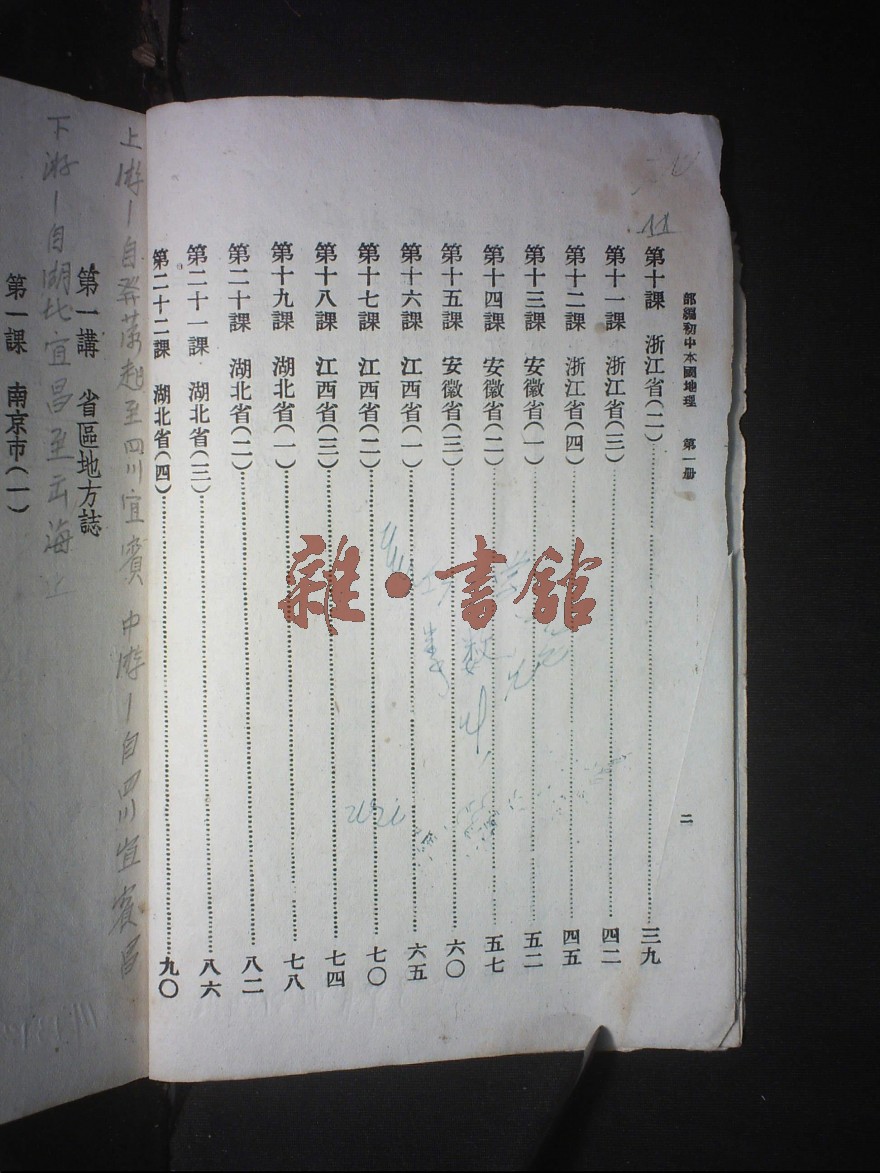 部編初中本國地理 第一册 二
第十課 浙江省(二) 三九
第十一課 浙江省(三) 四二
第十二課 浙江省(四) 四五
第十三課 安徽省(一) 五二
第十四課 安徽省(二) 五七
第十五課 安徽省(三) 六〇
第十六課 江西省(一) 六五
第十七課 江西省(二) 七〇
第十八課 江西省(三) 七四
第十九課 湖北省(一) 七八
第二十課 湖北省(二) 八二
第二十一課 湖北省(三) 八六
第二十二課 湖北省(四) 九〇
雜·書館
上游—自發荣起至四川宜賓 中游—自四川宜賓昌
第一講 省區地方誌
下游—自湖北宜昌至云海止
第一課 南京市(一)